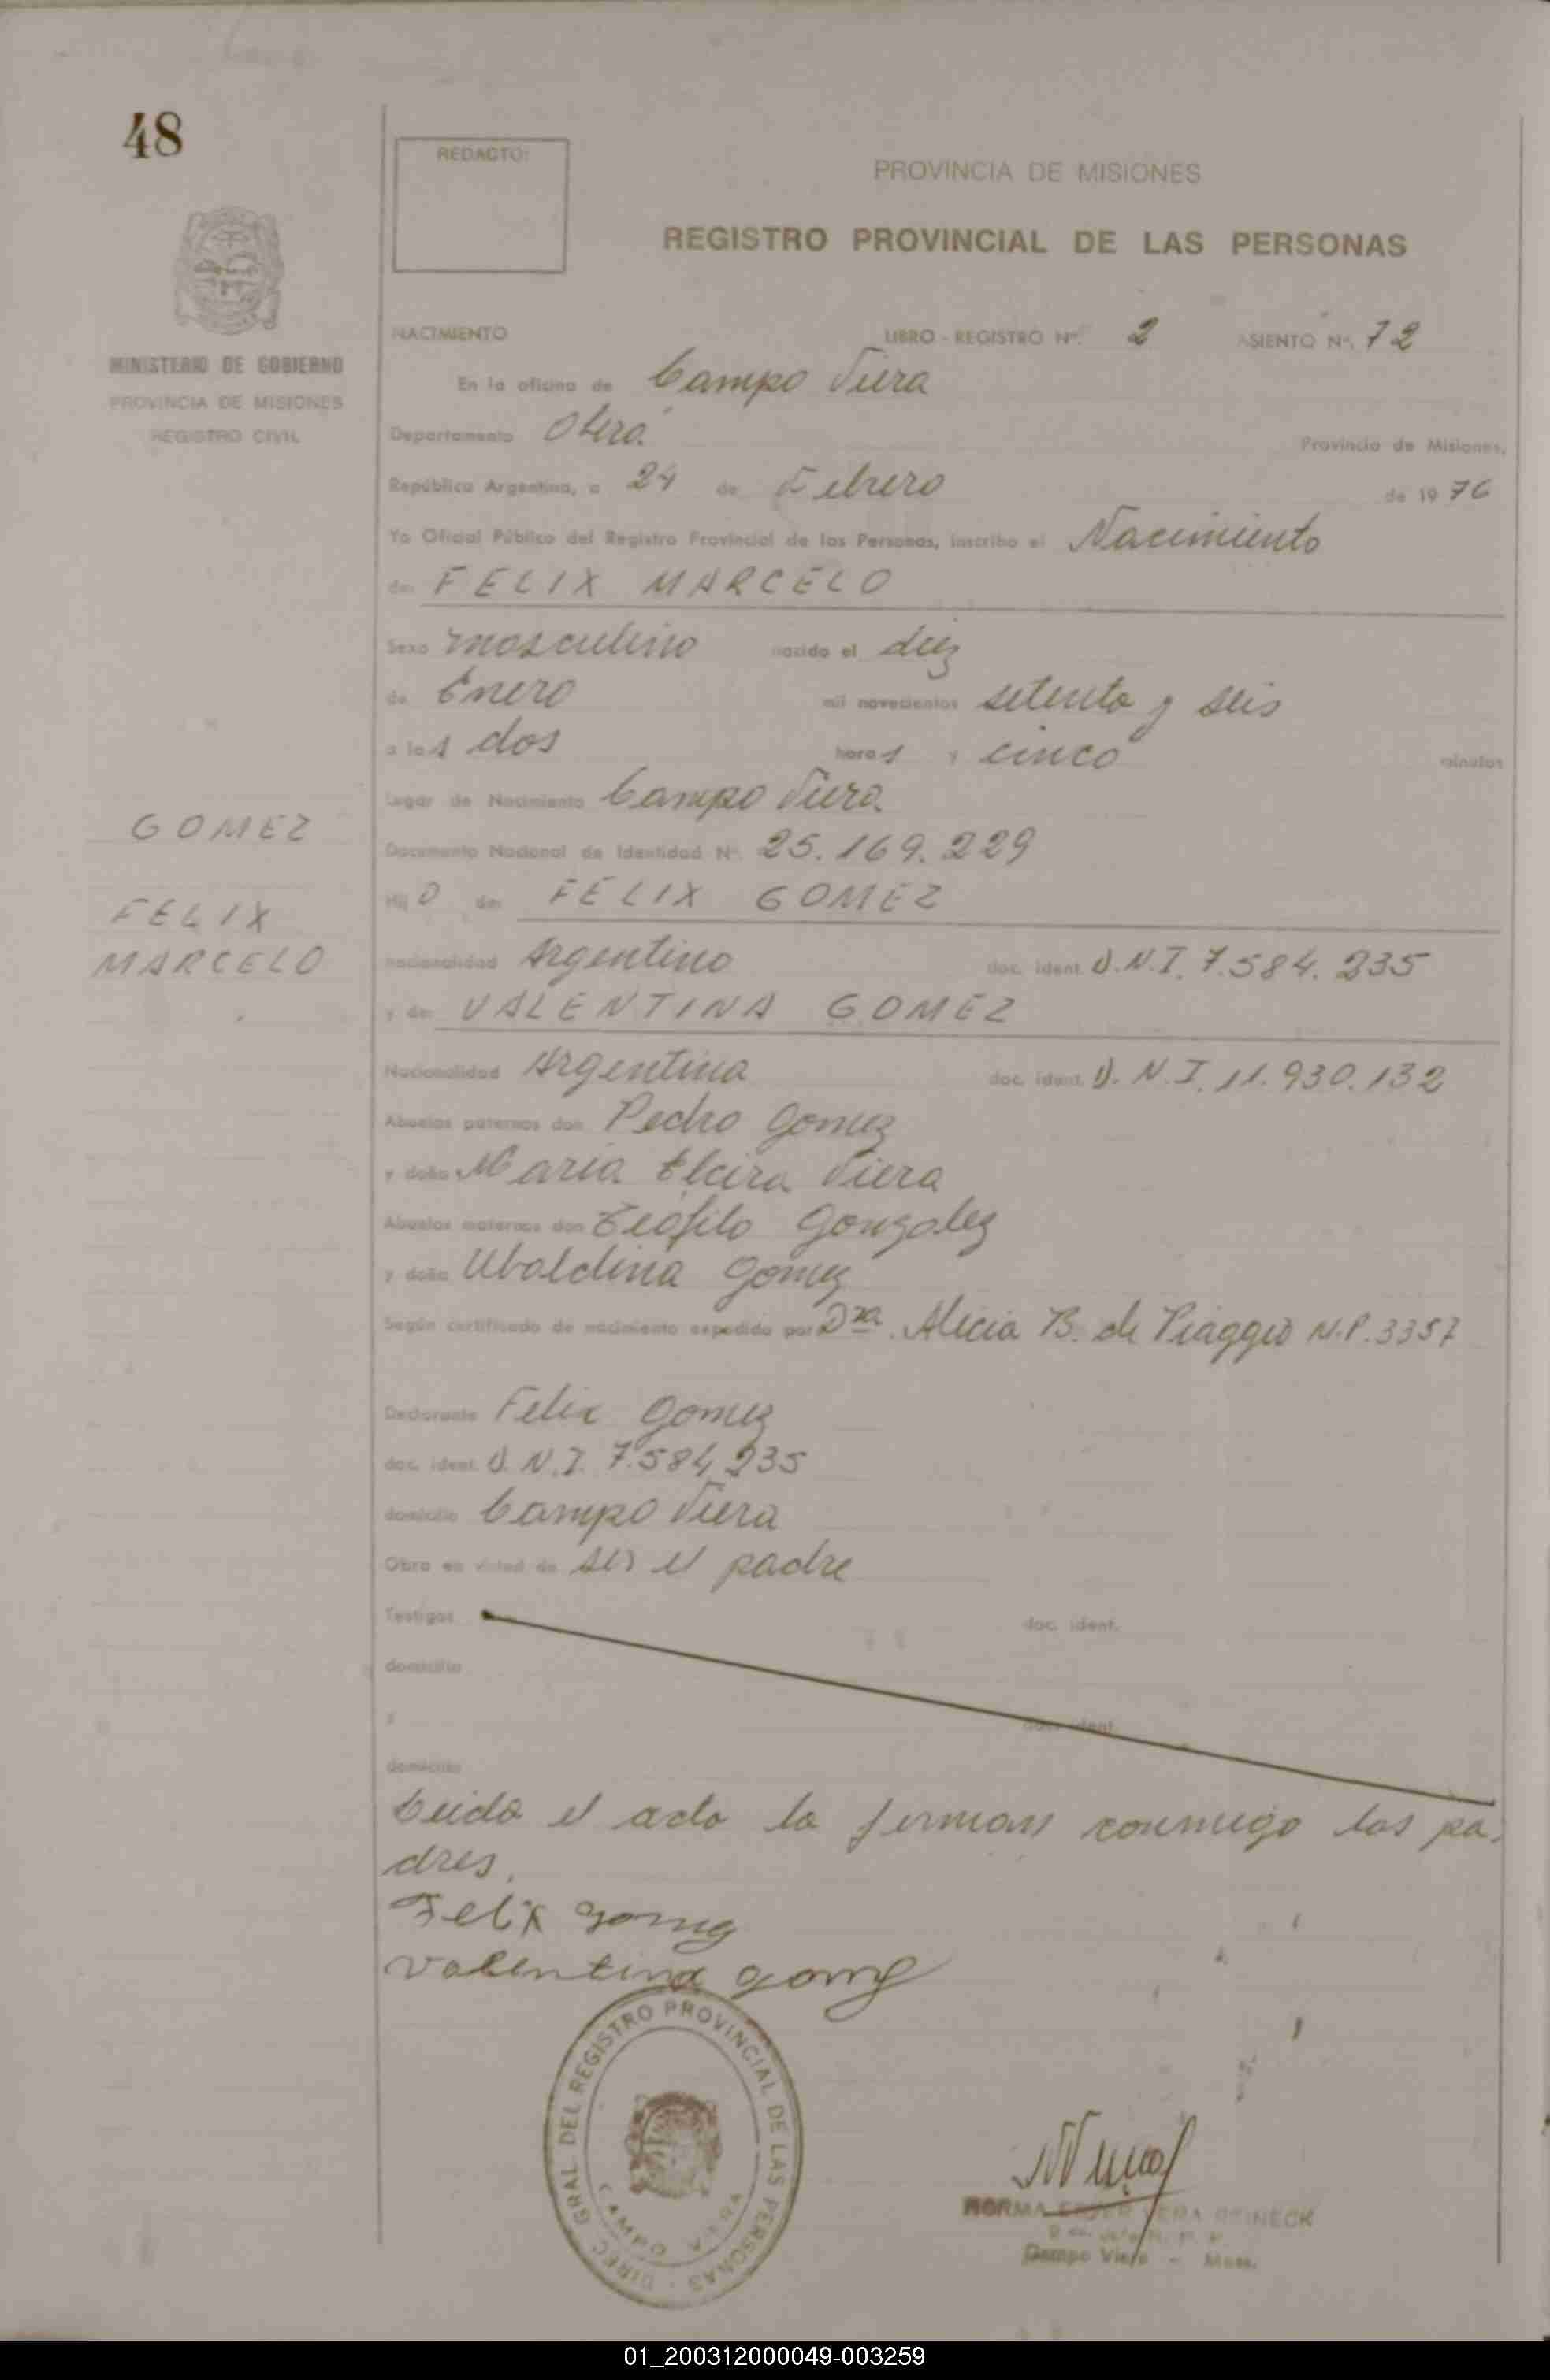 48
REDACTO:
PROVINCIA DE MISIONES
REGISTRO PROVINCIAL DE LAS PERSONAS
MINISTERIO DE GOBIERNO
PROVINCIA DE MISIONES
REGISTRO CIVIL
NACIMIENTO LIBRO - REGISTRO Nº. 2 ASIENTO Nº. 72
En la oficina de Campo Viera
Departamento Oberá Provincia de Misiones,
República Argentina, a 24 de Febrero de 19 76
Yo Oficial Público del Registro Provincial de las Personas, inscribo el Nacimiento
de: FELIX MARCELO
Sexo masculino nacido el diez
de Enero mil novecientos setenta y seis
a las dos horas y cinco minutos
Lugar de Nacimiento Campo Viera.
Documento Nacional de Identidad Nº 25.169.229
GOMEZ
FELIX
MARCELO
Hij o de: FELIX GOMEZ
nacionalidad Argentino doc. ident. D.N.I. 7.584.235
y de: VALENTINA GOMEZ
Nacionalidad Argentina doc. ident. D.N.I. 11.930.132
Abuelos paternos don Pedro Gomez
y doña Maria Elcira Viera
Abuelos maternos don Teófilo Gonzalez
y doña Ubaldina Gomez
Según certificado de nacimiento expedido por Dra. Alicia B. de Piaggio M.P. 3357
Declarante Felix Gomez
doc. ident. D.N.I. 7.584.235
domicilio Campo Viera
Obra en virtud de ser el padre
Testigos doc. ident.
domicilio
y doc. ident.
domicilio
Leida el acta la firman conmigo los pa-
dres.
Felix Gomez
Valentina Gomez
DIREC. GRAL. DEL REGISTRO PROVINCIAL DE LAS PERSONAS
CAMPO VIERA
NORMA VERA REINECK
Campo Viera - Mnes.
01_200312000049-003259